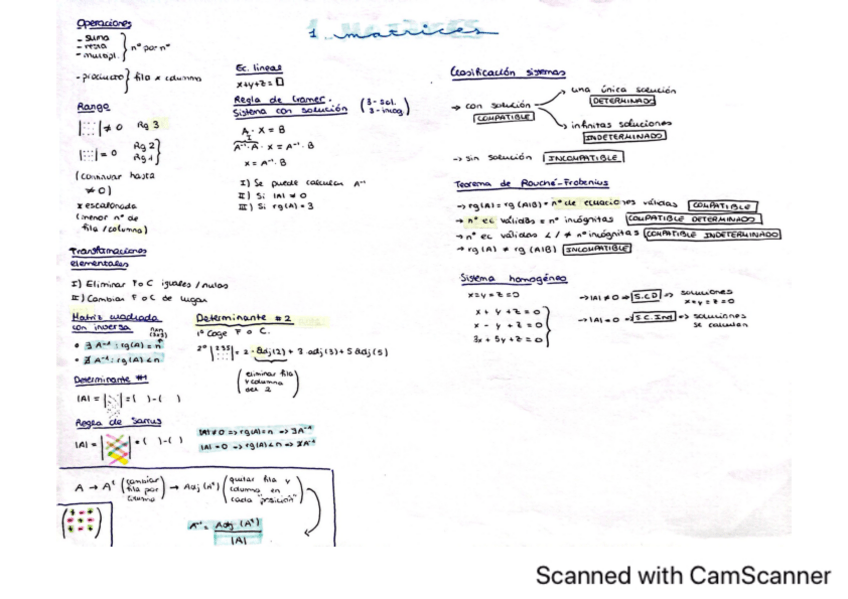 1. matrices
Operaciones
- suma
- resta
- multipl.
nº por nº
- producto} fila x columna
Rango
≠ 0 Rg 3
= 0 Rg 2
Rg 1
(continuar hasta
≠ 0)
x escalonada
(menor nº de
fila / columna)
Transformaciones
elementales
I) Eliminar F o C iguales / nulas
II) Cambiar F o C de lugar
Matriz cuadrada
con inversa nxn
(3x3)
• ∃ A⁻¹ : rg(A) = n
• ∄ A⁻¹ : rg(A) < n
Determinante #1
|A| = | | = ( ) - ( )
Regla de Sarrus
|A| = | | = ( ) - ( )
Ec. lineal
x+y+z = □
Regla de Cramer.
Sistema con solución (3 - sol.
3 - incóg.)
A · X = B
I
A⁻¹ · A · X = A⁻¹ · B
X = A⁻¹ · B
I) Se puede calcular A⁻¹
II) Si |A| ≠ 0
III) Si rg(A) = 3
Determinante #2
1º Coge F o C.
2º |2 3 5| = 2 · adj(2) + 3 adj(3) + 5 adj(5)
(eliminar fila
y columna
del 2)
|A| ≠ 0 => rg(A) = n => ∃A⁻¹
|A| = 0 => rg(A) < n => ∄A⁻¹
A → Aᵗ (cambiar fila por columna) → Adj (Aᵗ) (quitar fila y columna en cada "posición")
A⁻¹ = Adj (Aᵗ)
|A|
Clasificación sistemas
→ con solución
COMPATIBLE
una única solución
DETERMINADO
infinitas soluciones
INDETERMINADO
-> sin solución INCOMPATIBLE
Teorema de Rouché-Frobenius
→ rg(A) = rg (A|B) = nº de ecuaciones válidas COMPATIBLE
→ nº ec válidas = nº incógnitas COMPATIBLE DETERMINADO
→ nº ec válidas < / ≠ nº incógnitas COMPATIBLE INDETERMINADO
→ rg (A) ≠ rg (A|B) INCOMPATIBLE
Sistema homogéneo
x = y = z = 0
x + y + z = 0
x - y + z = 0
3x + 5y + z = 0
→ |A| ≠ 0 → S.C.D → soluciones
x = y = z = 0
→ |A| = 0 → S.C.Ind → soluciones
se calculan
Scanned with CamScanner